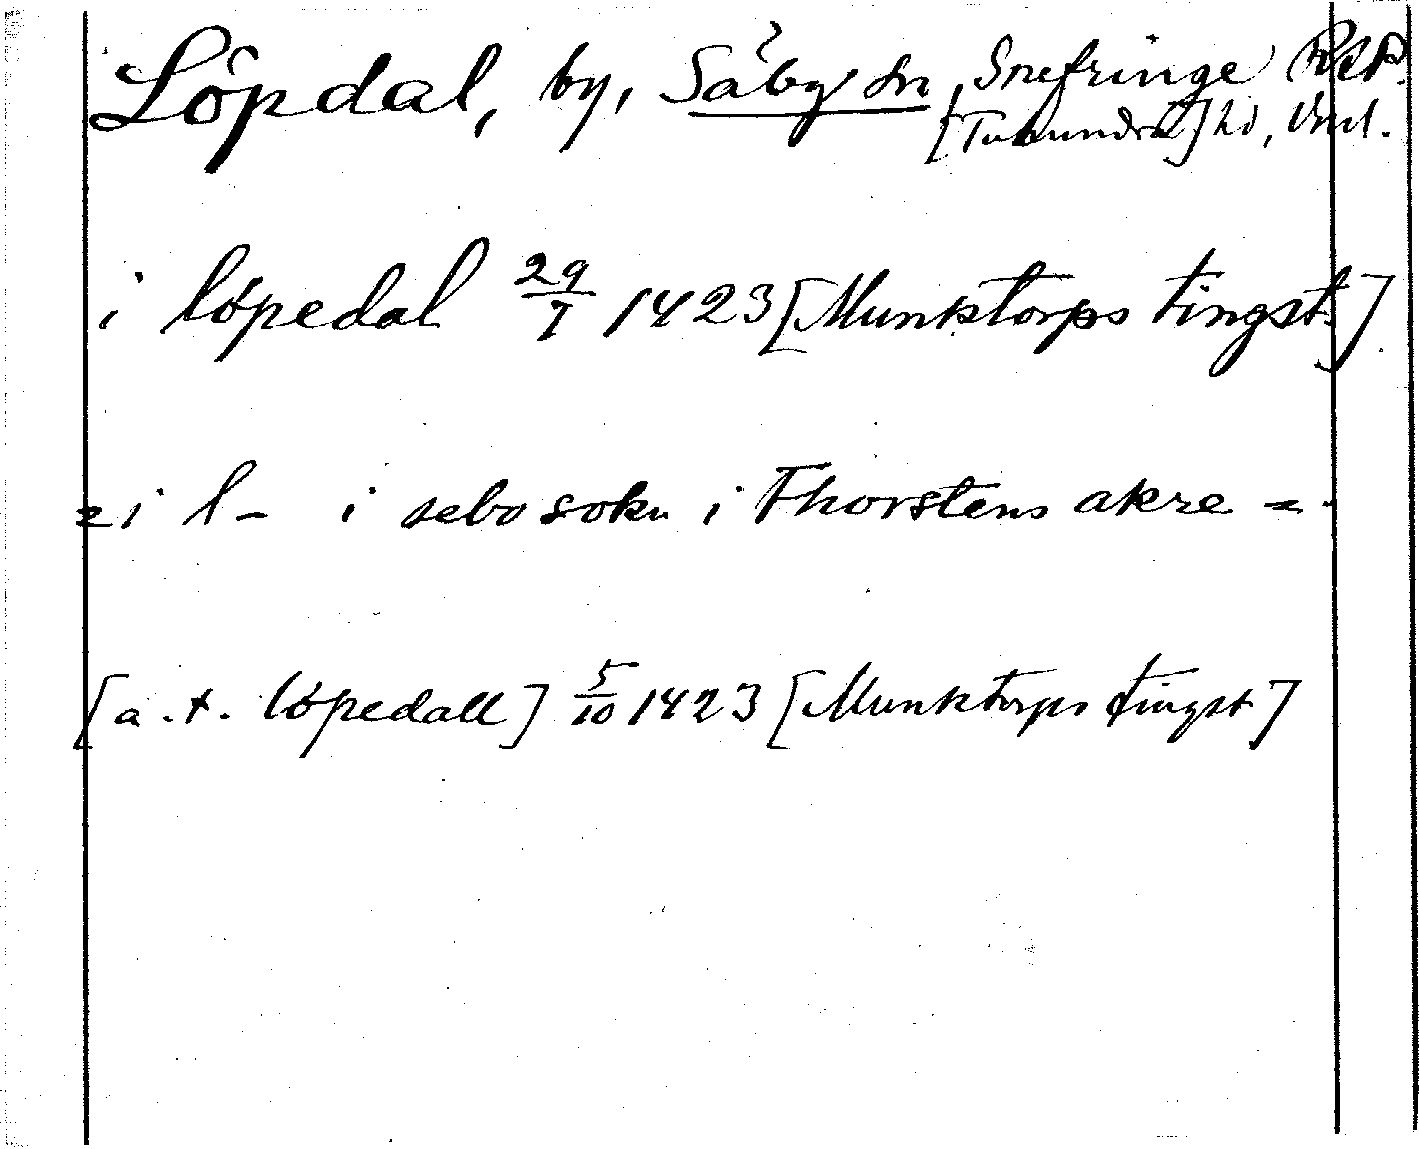 Löpdal, by, Säby sn, Snefringe RAP.
[Tuhundra] hd, Vml.
i löpedal 29/7 1423 [Munktorps tingst.]
= i l - i sebo sokn i Thorstens akre =
[a.t. löpedall] 5/10 1423 [Munktorps tingst]